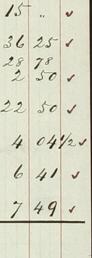 15 " ✓
36 25 ✓
28 78
2 50 ✓
22 50 ✓
4 04 1/2 ✓
6 41 ✓
7 49 ✓